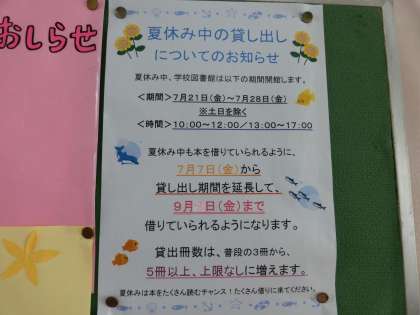 おしらせ
夏休み中の貸し出し
についてのお知らせ
夏休み中、学校図書館は以下の期間開館します。
＜期間＞7月21日(金)～7月28日(金)
※土日を除く
＜時間＞10:00～12:00/13:00～17:00
夏休み中も本を借りていられるように、
7月7日(金)から
貸し出し期間を延長して、
9月 日(金)まで
借りていられるようになります。
貸出冊数は、普段の3冊から、
5冊以上、上限なしに増えます。
夏休みは本をたくさん読むチャンス！たくさん借りに来てください。